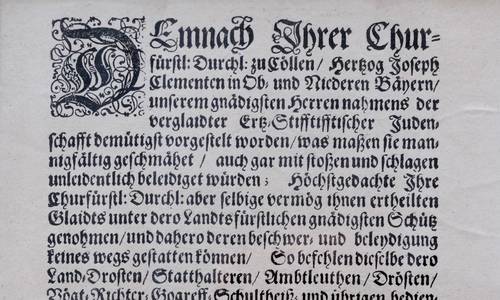 DEmnach Ihrer Chur-
fürstl: Durchl: zu Cöllen / Hertzog Joseph
Clementen in Ob- und Niederen Bäyern /
unserem gnädigsten Herren nahmens der
verglaidter Ertz-Stifftifftischer Juden-
schafft demütigst vorgestelt worden / was maßen sie man-
nigfältig geschmähet / auch gar mit stoßen und schlagen
unleidentlich beleidiget würden ; Höchstgedachte Ihre
Churfürstl: Durchl: aber selbige vermög ihnen ertheilten
Glaidts unter dero Landtsfürstlichen gnädigsten Schütz
genohmen / und dahero deren beschwer- und beleydigung
keines wegs gestatten können / So befehlen dieselbe dero
Land-Drosten / Statthalteren / Ambtleuthen / Drösten /
Vögt- Richter- Schultheiß- und übrigen